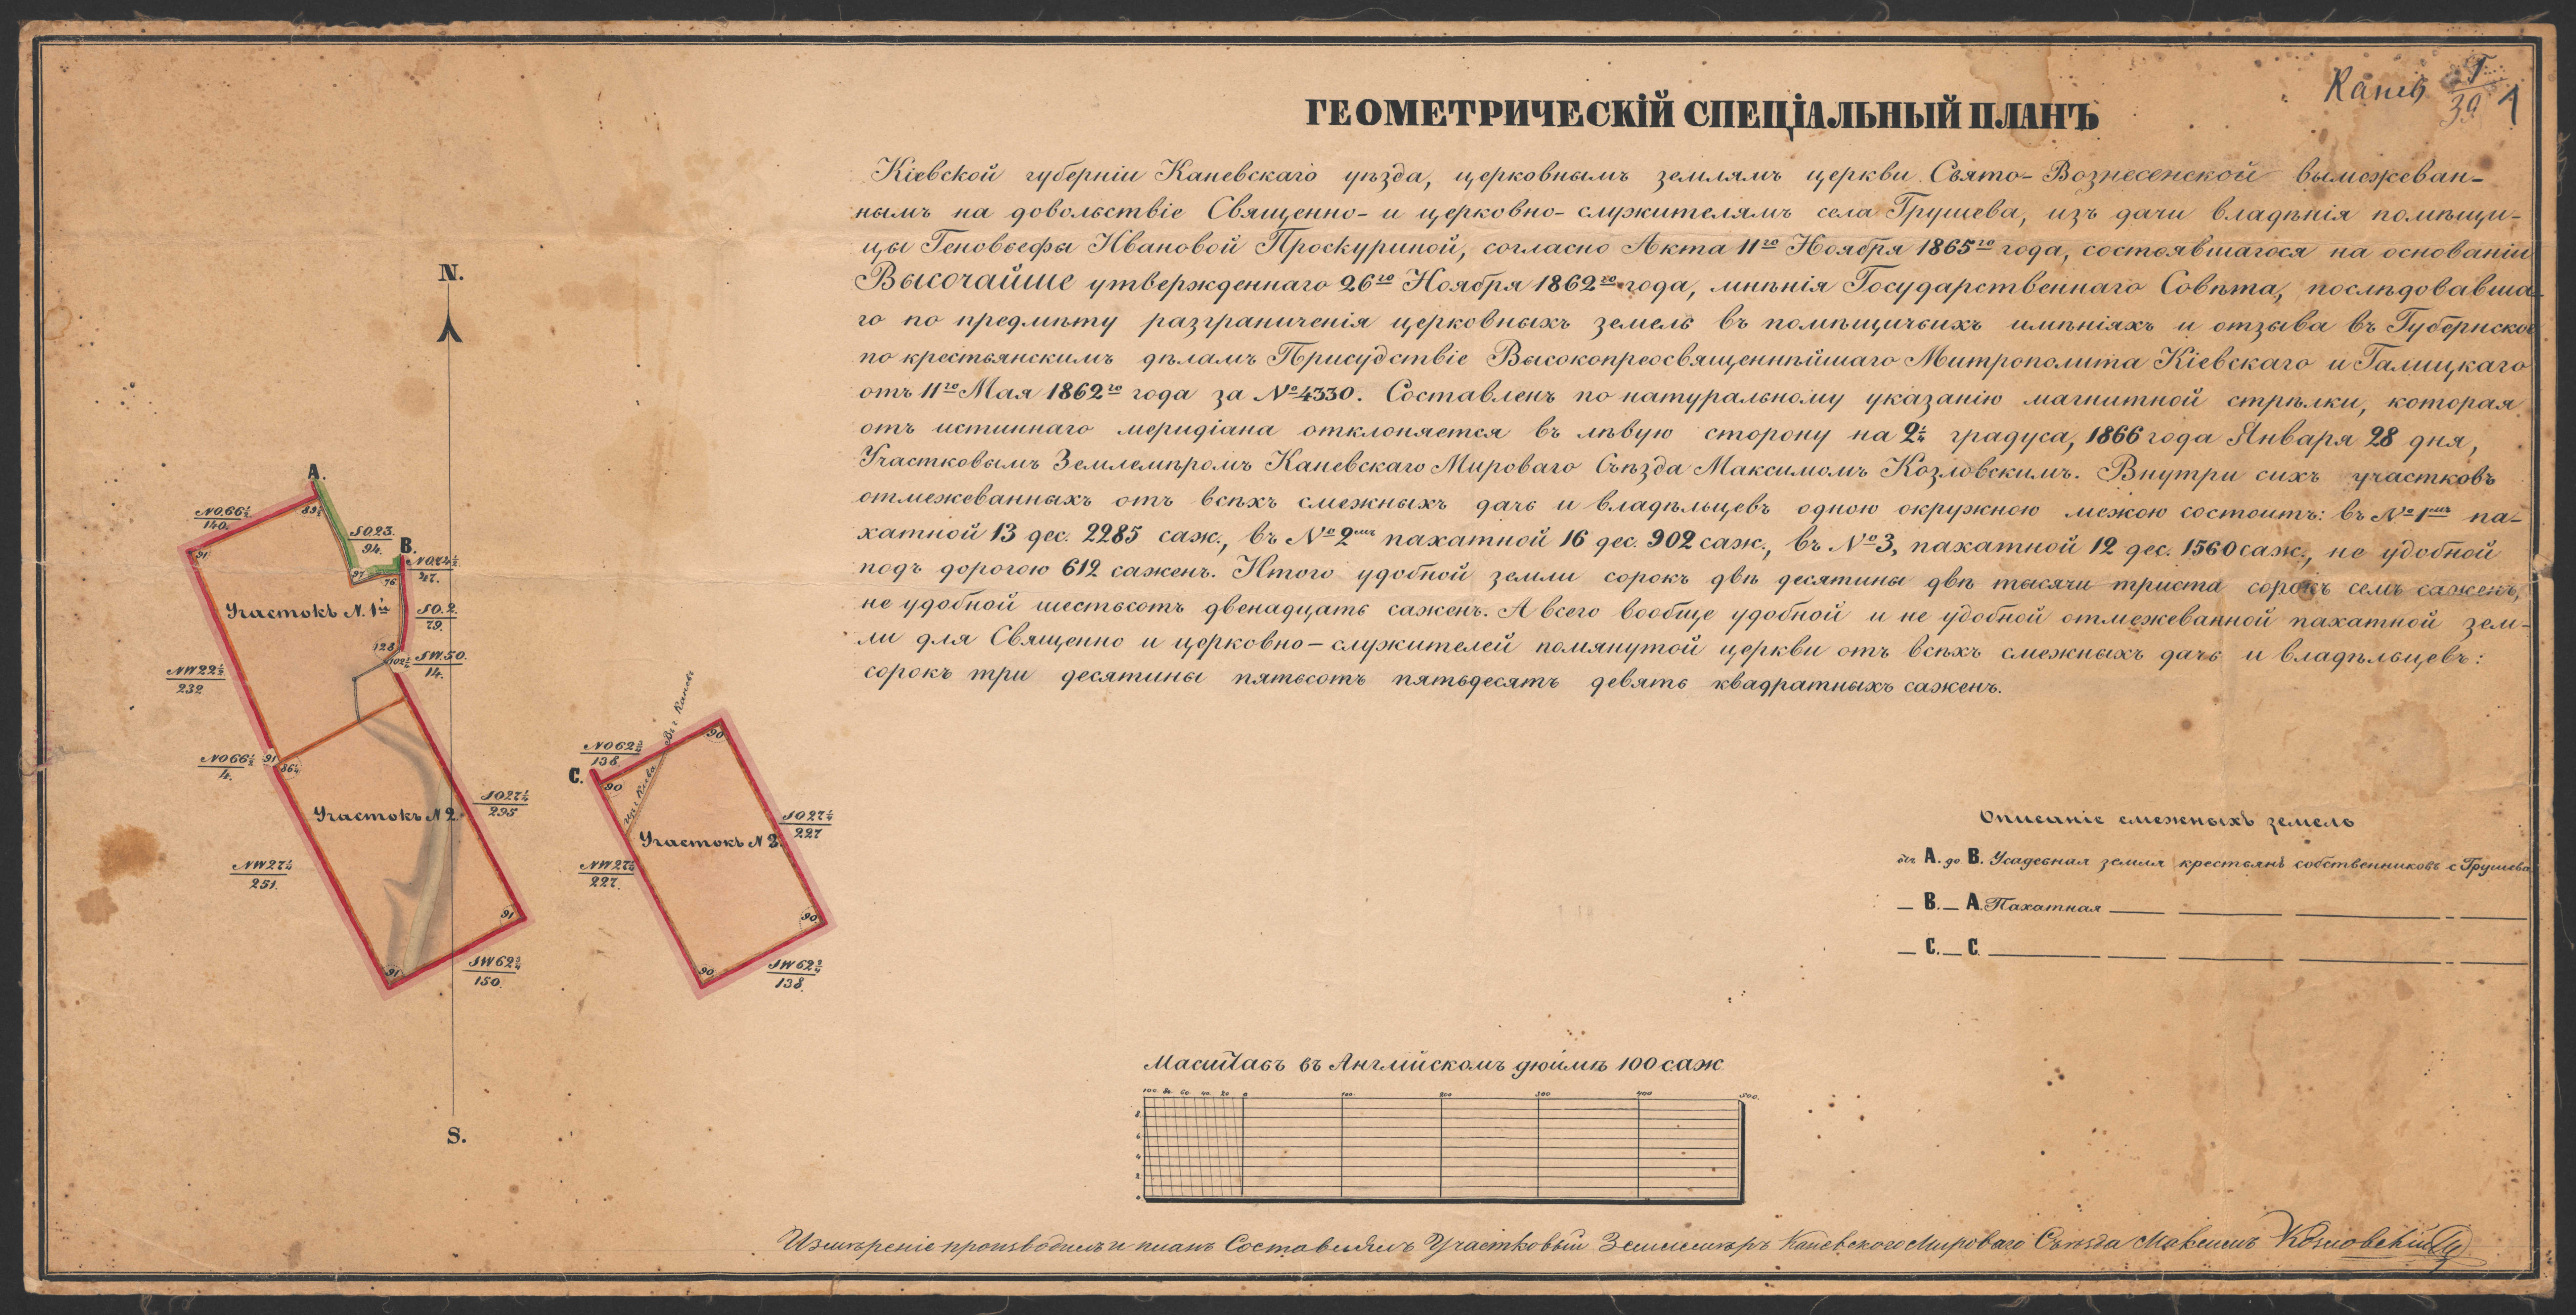 Каневъ 1
39
ГЕОМЕТРИЧЕСКІЙ СПЕЦІАЛЬНЫЙ ПЛАНЪ
Кіевской губерніи Каневскаго уѣзда, церковнымъ землямъ церкви Свято-Вознесенской вымежеван-
нымъ на довольствіе Священно- и церковно-служителямъ села Грушева, изъ дачи владѣнія помѣщи-
цы Геновефы Ивановой Проскуриной, согласно Акта 11го Ноября 1865го года, состоявшагося на основаніи
Высочайше утвержденнаго 26го Ноября 1862го года, мнѣнія Государственнаго Совѣта, послѣдовавша-
го по предмѣту разграниченія церковныхъ земель въ помѣщичьихъ имѣніяхъ и отзыва въ Губернское
по крестьянскимъ дѣламъ Присудствіе Высокопреосвященнѣйшаго Митрополита Кіевскаго и Галицкаго
отъ 11го Мая 1862го года за № 4330. Составленъ по натуральному указанію магнитной стрѣлки, которая
отъ истиннаго меридіана отклоняется въ лѣвую сторону на 2¼ градуса, 1866 года Января 28 дня,
Участковымъ Землемѣромъ Каневскаго Мироваго Съѣзда Максимомъ Козловскимъ. Внутри сихъ участковъ
отмежеванныхъ отъ всѣхъ смежныхъ дачъ и владѣльцевъ одною окружною межою состоитъ: въ № 1мъ па-
хатной 13 дес. 2285 саж., въ № 2мъ пахатной 16 дес. 902 саж., въ № 3, пахатной 12 дес. 1560 саж., не удобной
подъ дорогою 612 саженъ. Итого удобной земли сорокъ двѣ десятины двѣ тысячи триста сорокъ семь саженъ,
не удобной шестьсотъ двенадцать саженъ. А всего вообще удобной и не удобной отмежеванной пахатной зем-
ли для Священно и церковно-служителей помянутой церкви отъ всѣхъ смежныхъ дачъ и владѣльцевъ:
сорокъ три десятины пятьсотъ пятьдесятъ девять квадратныхъ саженъ.
N.
A.
NO.66½
140.
89½
SO.23.
94.
B.
91
97
76
47.
Участокъ N. 1й
SO.2.
79.
128
102½
SW.50.
14.
NW22½
232
NO66½
4.
91
86¼
Участокъ N 2.
SO27¼
295
NW27¼
251.
91
91
SW62¾
150.
S.
Въ г Каневъ
NO62¾
138.
C.
90
90
изъ г Кіева
Участокъ N 3.
SO27¼
227
NW27¼
227.
90
90
SW62¾
138.
Описаніе смежныхъ земель
отъ A. до B. Усадебная земля крестьянъ собственниковъ с Грушева
— B. — A. Пахатная
— C. — C.
Масштабъ въ Англійскомъ дюймѣ 100 саж
100. 80. 60. 40. 20 0 100. 200 300 400 500.
8.
6
4
2
0.
Измѣреніе производилъ и планъ Составлялъ Участковый Землемѣръ Каневскаго Мироваго Съѣзда Максимъ Козловскій